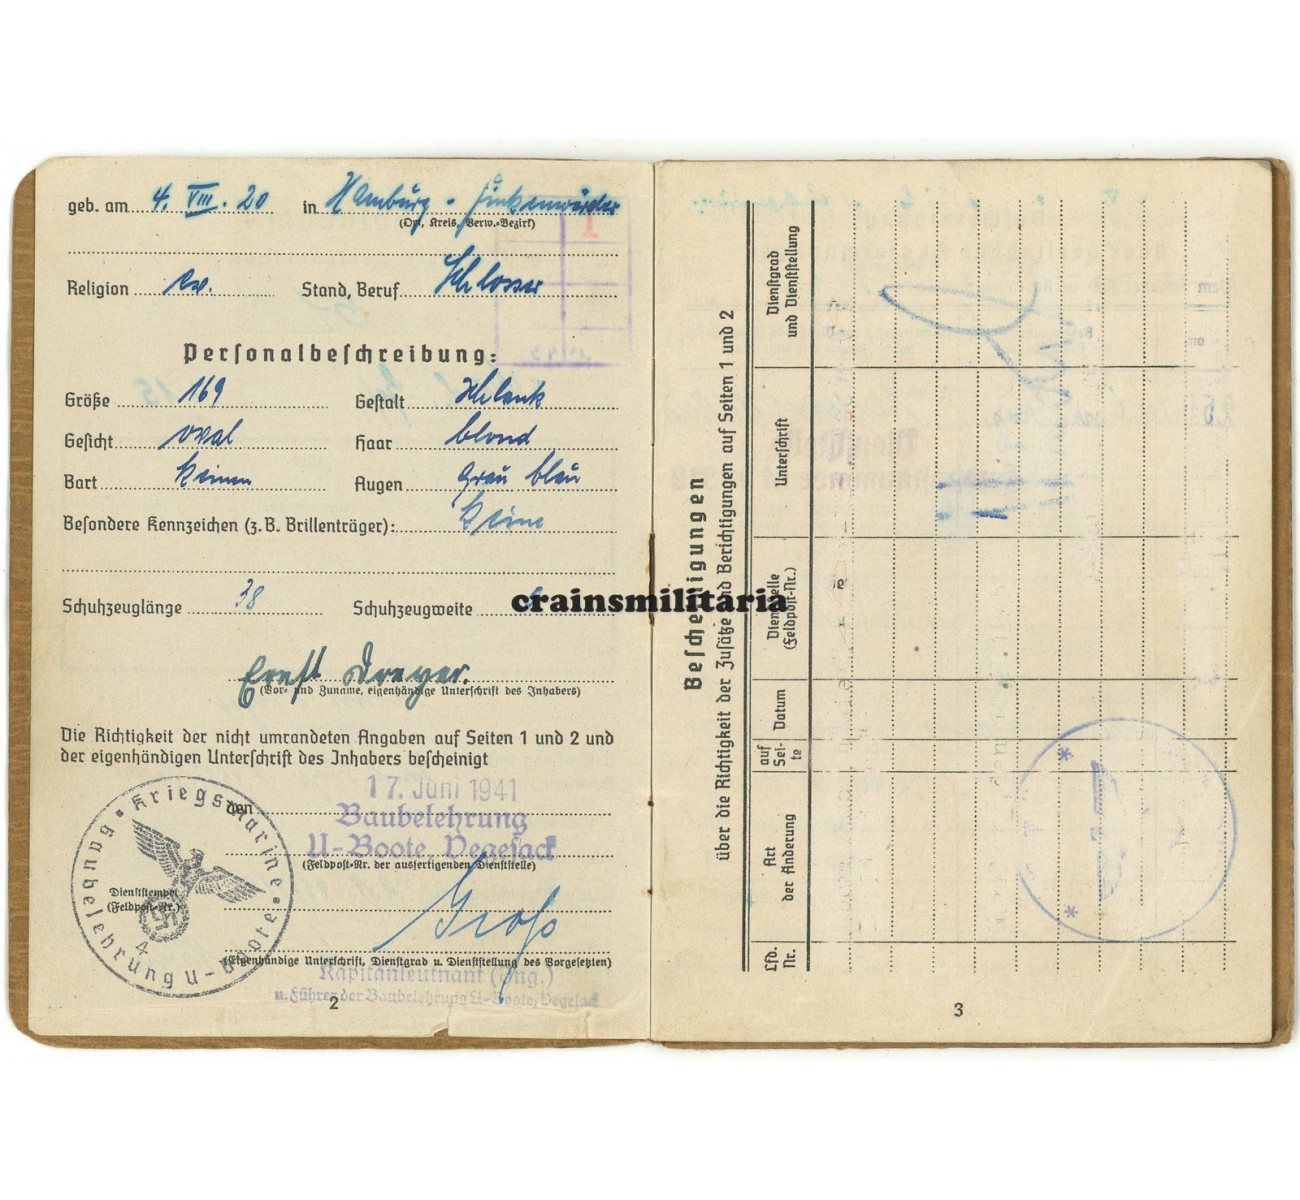 geb. am 4. VIII. 20 in Hamburg - Finkenwärder
(Ort, Kreis, Verw.-Bezirk)
Religion ev. Stand, Beruf Schlosser
Personalbeschreibung:
Größe 169 Gestalt schlank
Gesicht oval Haar blond
Bart keinen Augen grau blau
Besondere Kennzeichen (z. B. Brillenträger): keine
Schuhzeuglänge 38 Schuhzeugweite
crainsmilitaria
Ernst Dreyer.
(Vor- und Zuname, eigenhändige Unterschrift des Inhabers)
Die Richtigkeit der nicht umrandeten Angaben auf Seiten 1 und 2 und
der eigenhändigen Unterschrift des Inhabers bescheinigt
den 17. Juni 1941
Baubelehrung
U-Boote, Vegesack
(Feldpost-Nr. der ausfertigenden Dienststelle)
Kriegsmarine
Baubelehrung U-Boote
4
Dienststempel
(Feldpost-Nr.)
(Eigenhändige Unterschrift, Dienstgrad u. Dienststellung des Vorgesetzten)
Kapitänleutnant (Ing.)
u. Führer der Baubelehrung U-Boote, Vegesack
2
Bescheinigungen
über die Richtigkeit der Zusätze und Berichtigungen auf Seiten 1 und 2
Lfd. Nr.
Art der Änderung
auf Sei- te
Datum
Dienststelle (Feldpost-Nr.)
Unterschrift
Dienstgrad und Dienststellung
3